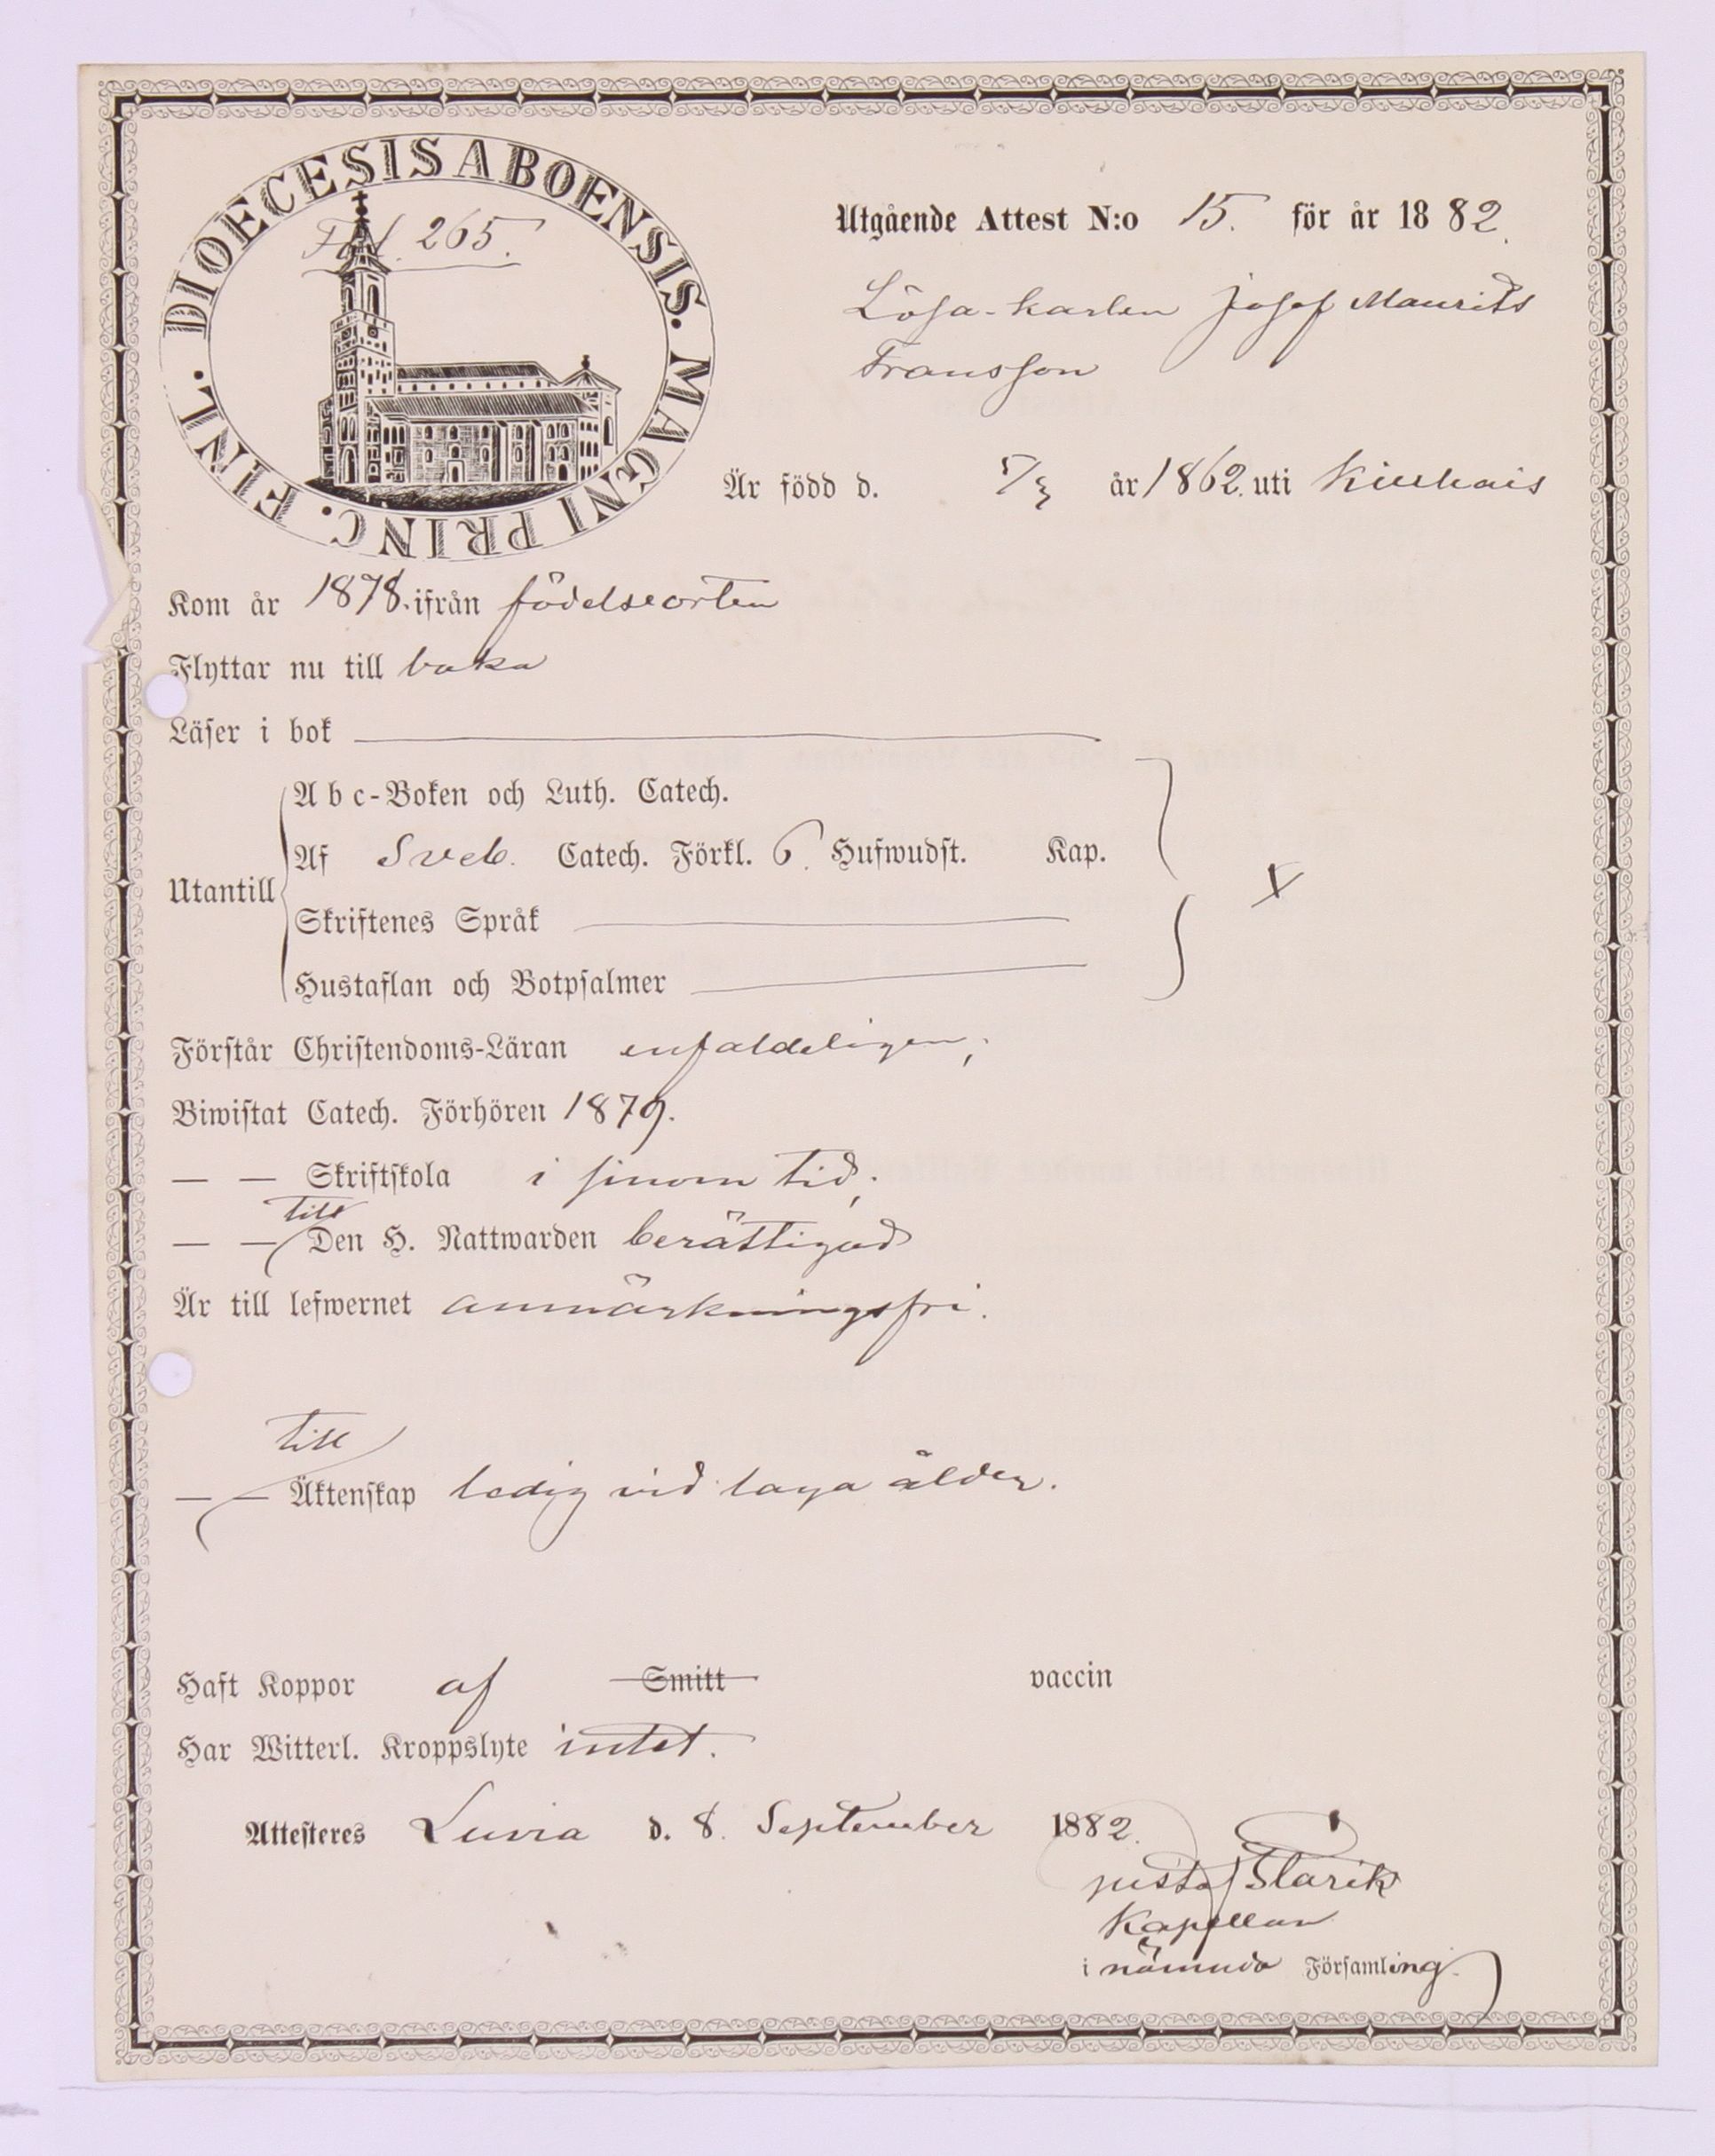 DIOECESIS ABOENSIS. MAGNI PRINC. FINL.
Fol. 265.
Utgående Attest N:o 15. för år 1882.
Lösa-karlen Josef Maurits
Fransson
Är född d. 5/3 år 1862. uti
Kom år 1878. ifrån födelseorten
Flyttar nu till baka
Läser i bok
Abc-Boken och Luth. Catech.
Af Sveb. Catech. Förkl. 6. Hufwudst. Kap.
Utantill
Skriftenes Språk
Hustaflan och Botpsalmer
x
Förstår Christendoms-Läran enfaldeligen;
Biwistat Catech. Förhören 1879.
— — Skriftskola i sinom tid;
till
— — Den H. Nattwarden berättigad
Är till lefwernet anmärkningsfri.
till
— — Äktenskap ledig vid laga ålder.
Haft Koppor af Smitt vaccin
Har Witterl. Kroppslyte intet.
Attesteres Luvia d. 8. September 1882.
Gustaf Starik
Kapellan
i nämnda Församling.